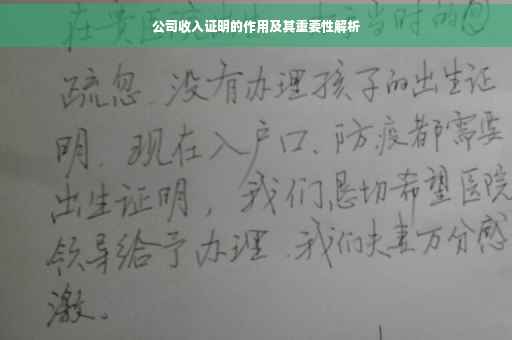 公司收入证明的作用及其重要性解析
在贵医院 当时的
疏忽、没有办理孩子的出生证
明、现在入户口、防疫都需要
出生证明，我们恳切希望医院
领导给予办理、我们夫妻万分感
激。